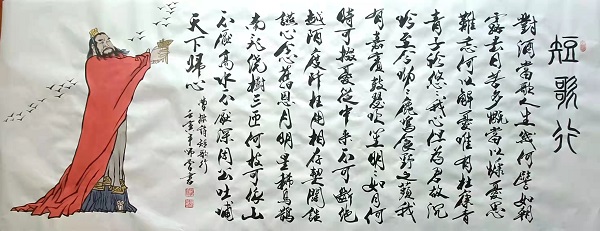 短歌行
對酒當歌人生幾何譬如朝
露去日苦多慨當以慷憂思
難忘何以解憂唯有杜康青
青子衿悠悠我心但為君故沉
吟至今呦呦鹿鳴食野之蘋我
有嘉賓鼓瑟吹笙明明如月何
時可掇憂從中來不可斷絕
越陌度阡枉用相存契闊讌
談心念舊恩月明星稀烏鵲
南飛繞樹三匝何枝可依山
不厭高水不厭深周公吐哺
天下歸心
曹操詩短歌行
壬寅年書